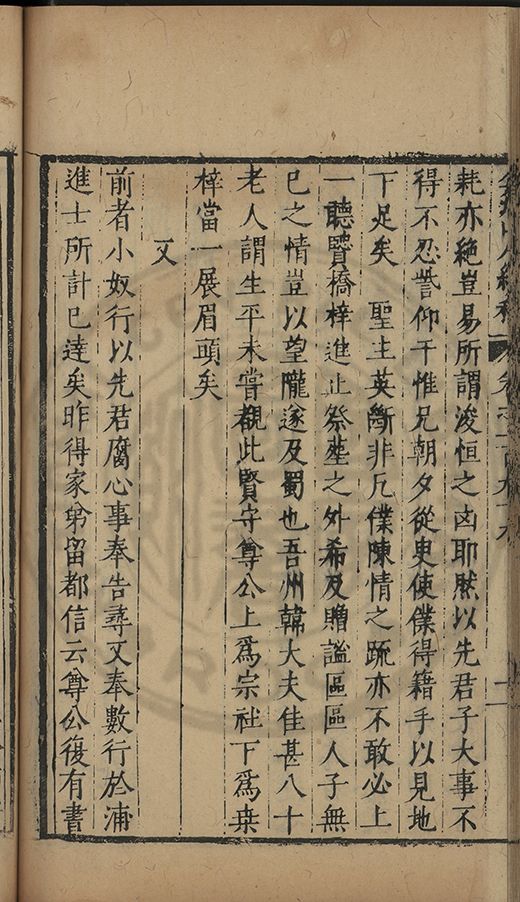 耗亦絕豈易所謂浚恒之凶耶然以先君子大事不
得不忍訾仰干惟兄朝夕從臾使僕得籍手以見地
下足矣　聖主英斷非凡僕陳情之疏亦不敢必上
一聽覽橋梓進止祭塟之外希及贈謚區區人子無
已之情豈以望隴遂及蜀也吾州韓大夫佳甚八十
老人謂生平未嘗覩此賢守尊公上爲宗社下爲桒
梓當一展眉頭矣
又
前者小奴行以先君腐心事奉告尋又奉數行於浦
進士所計已達矣昨得家弟留都信云尊公復有書